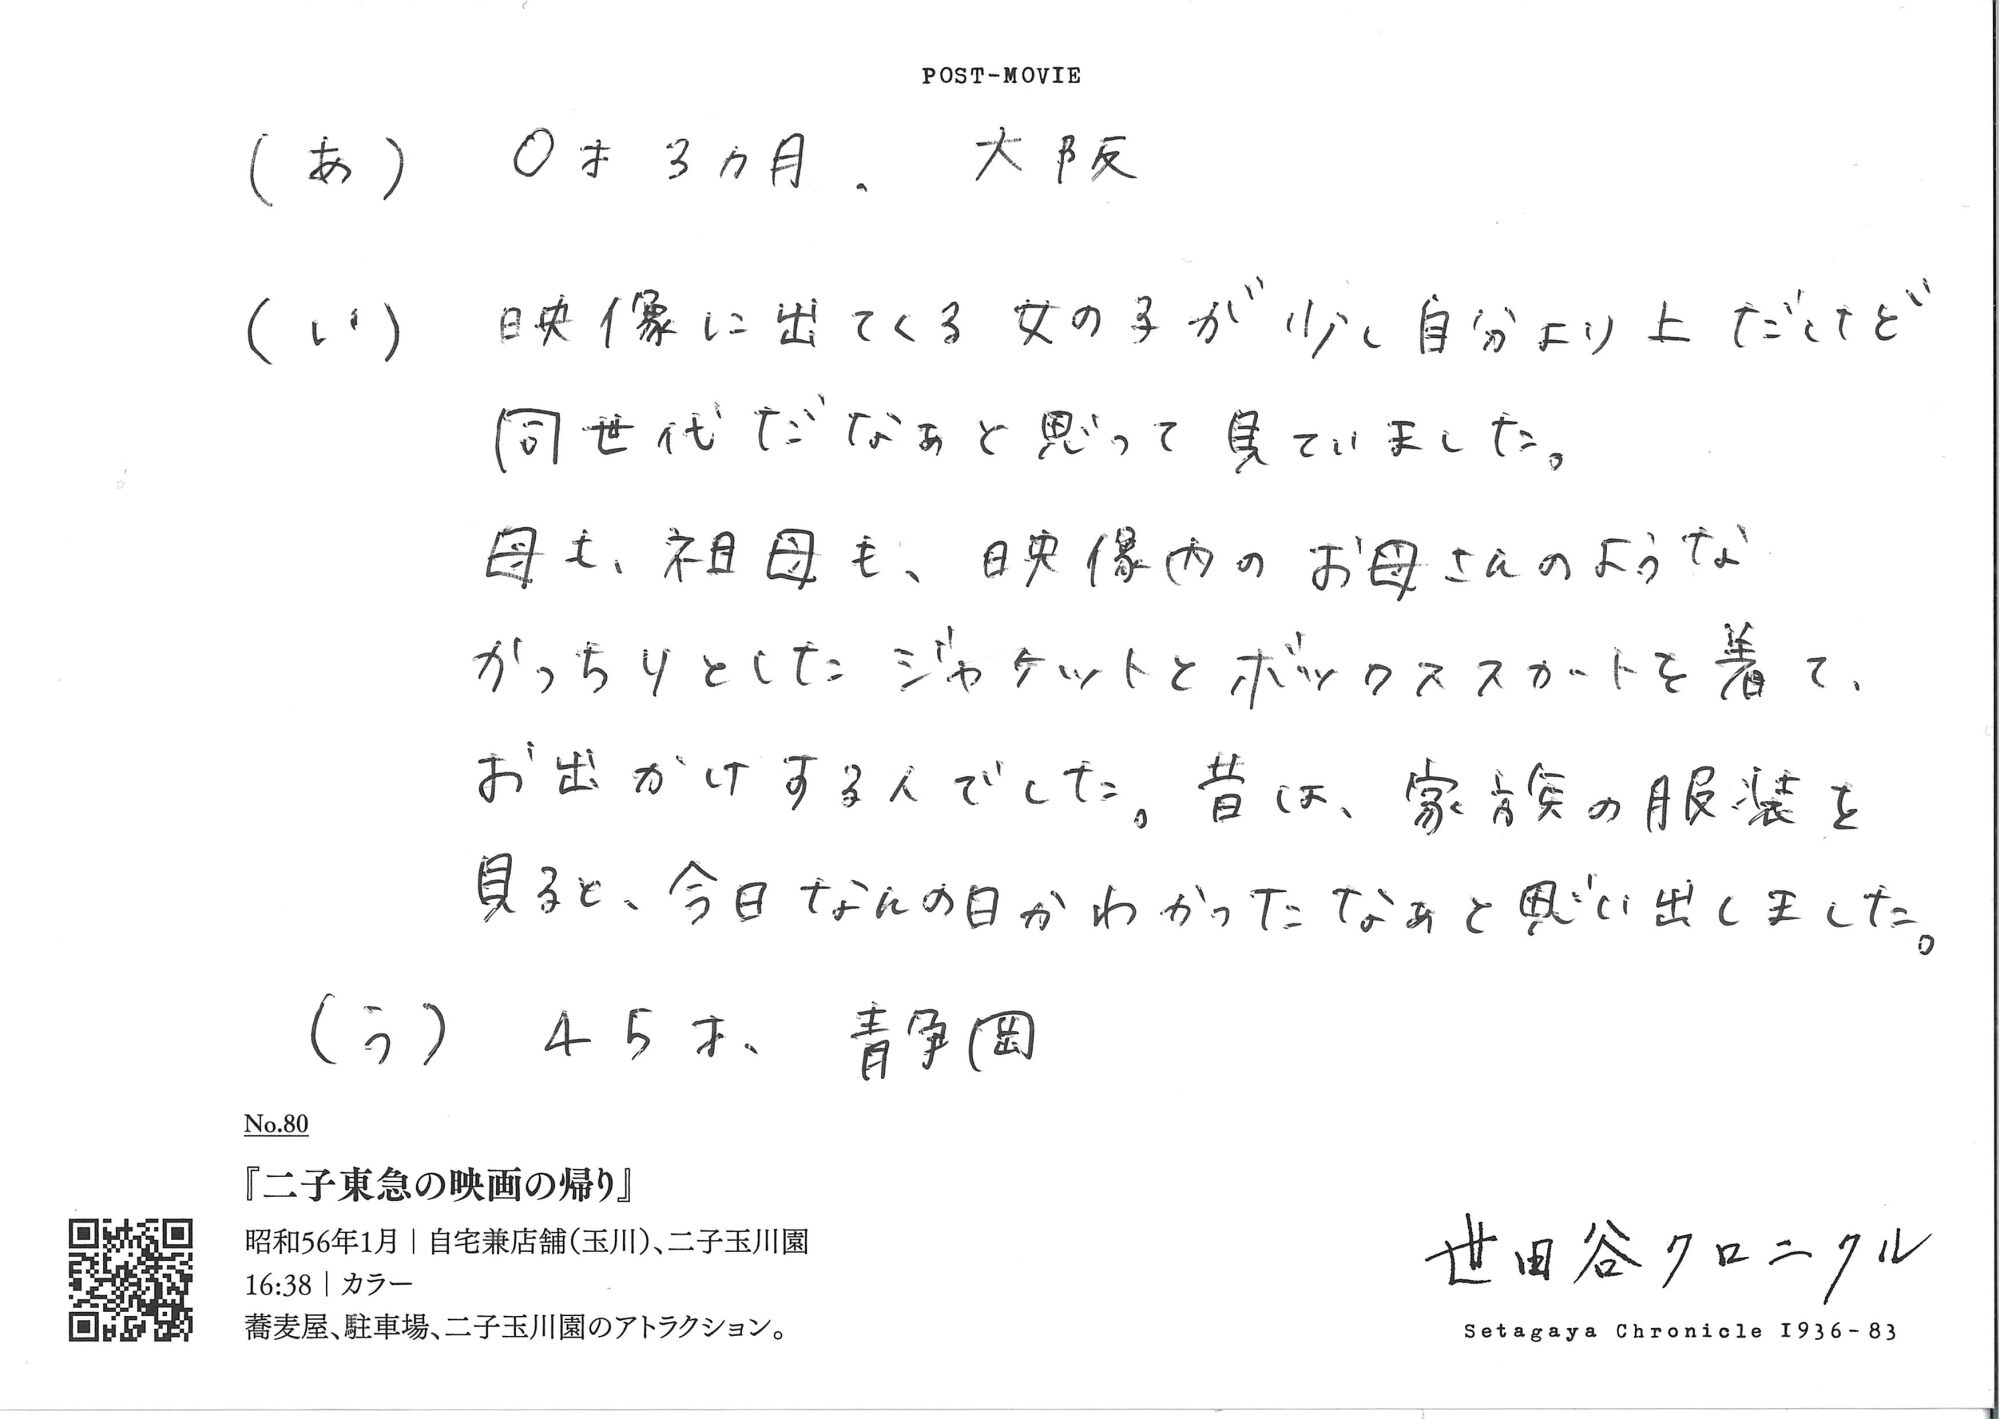 POST-MOVIE
(あ) 0才3カ月、大阪
(い) 映像に出てくる女の子が少し自分より上だけど
同世代だなぁと思って見ていました。
母も、祖母も、映像内のお母さんのような
かっちりとしたジャケットとボックススカートを着て、
お出かけする人でした。昔は、家族の服装を
見ると、今日なんの日かわかったなぁと思い出しました。
(う) 45才、静岡
No.80
『二子東急の映画の帰り』
昭和56年1月｜自宅兼店舗(玉川)、二子玉川園
16:38｜カラー
蕎麦屋、駐車場、二子玉川園のアトラクション。
世田谷クロニクル
Setagaya Chronicle 1936-83